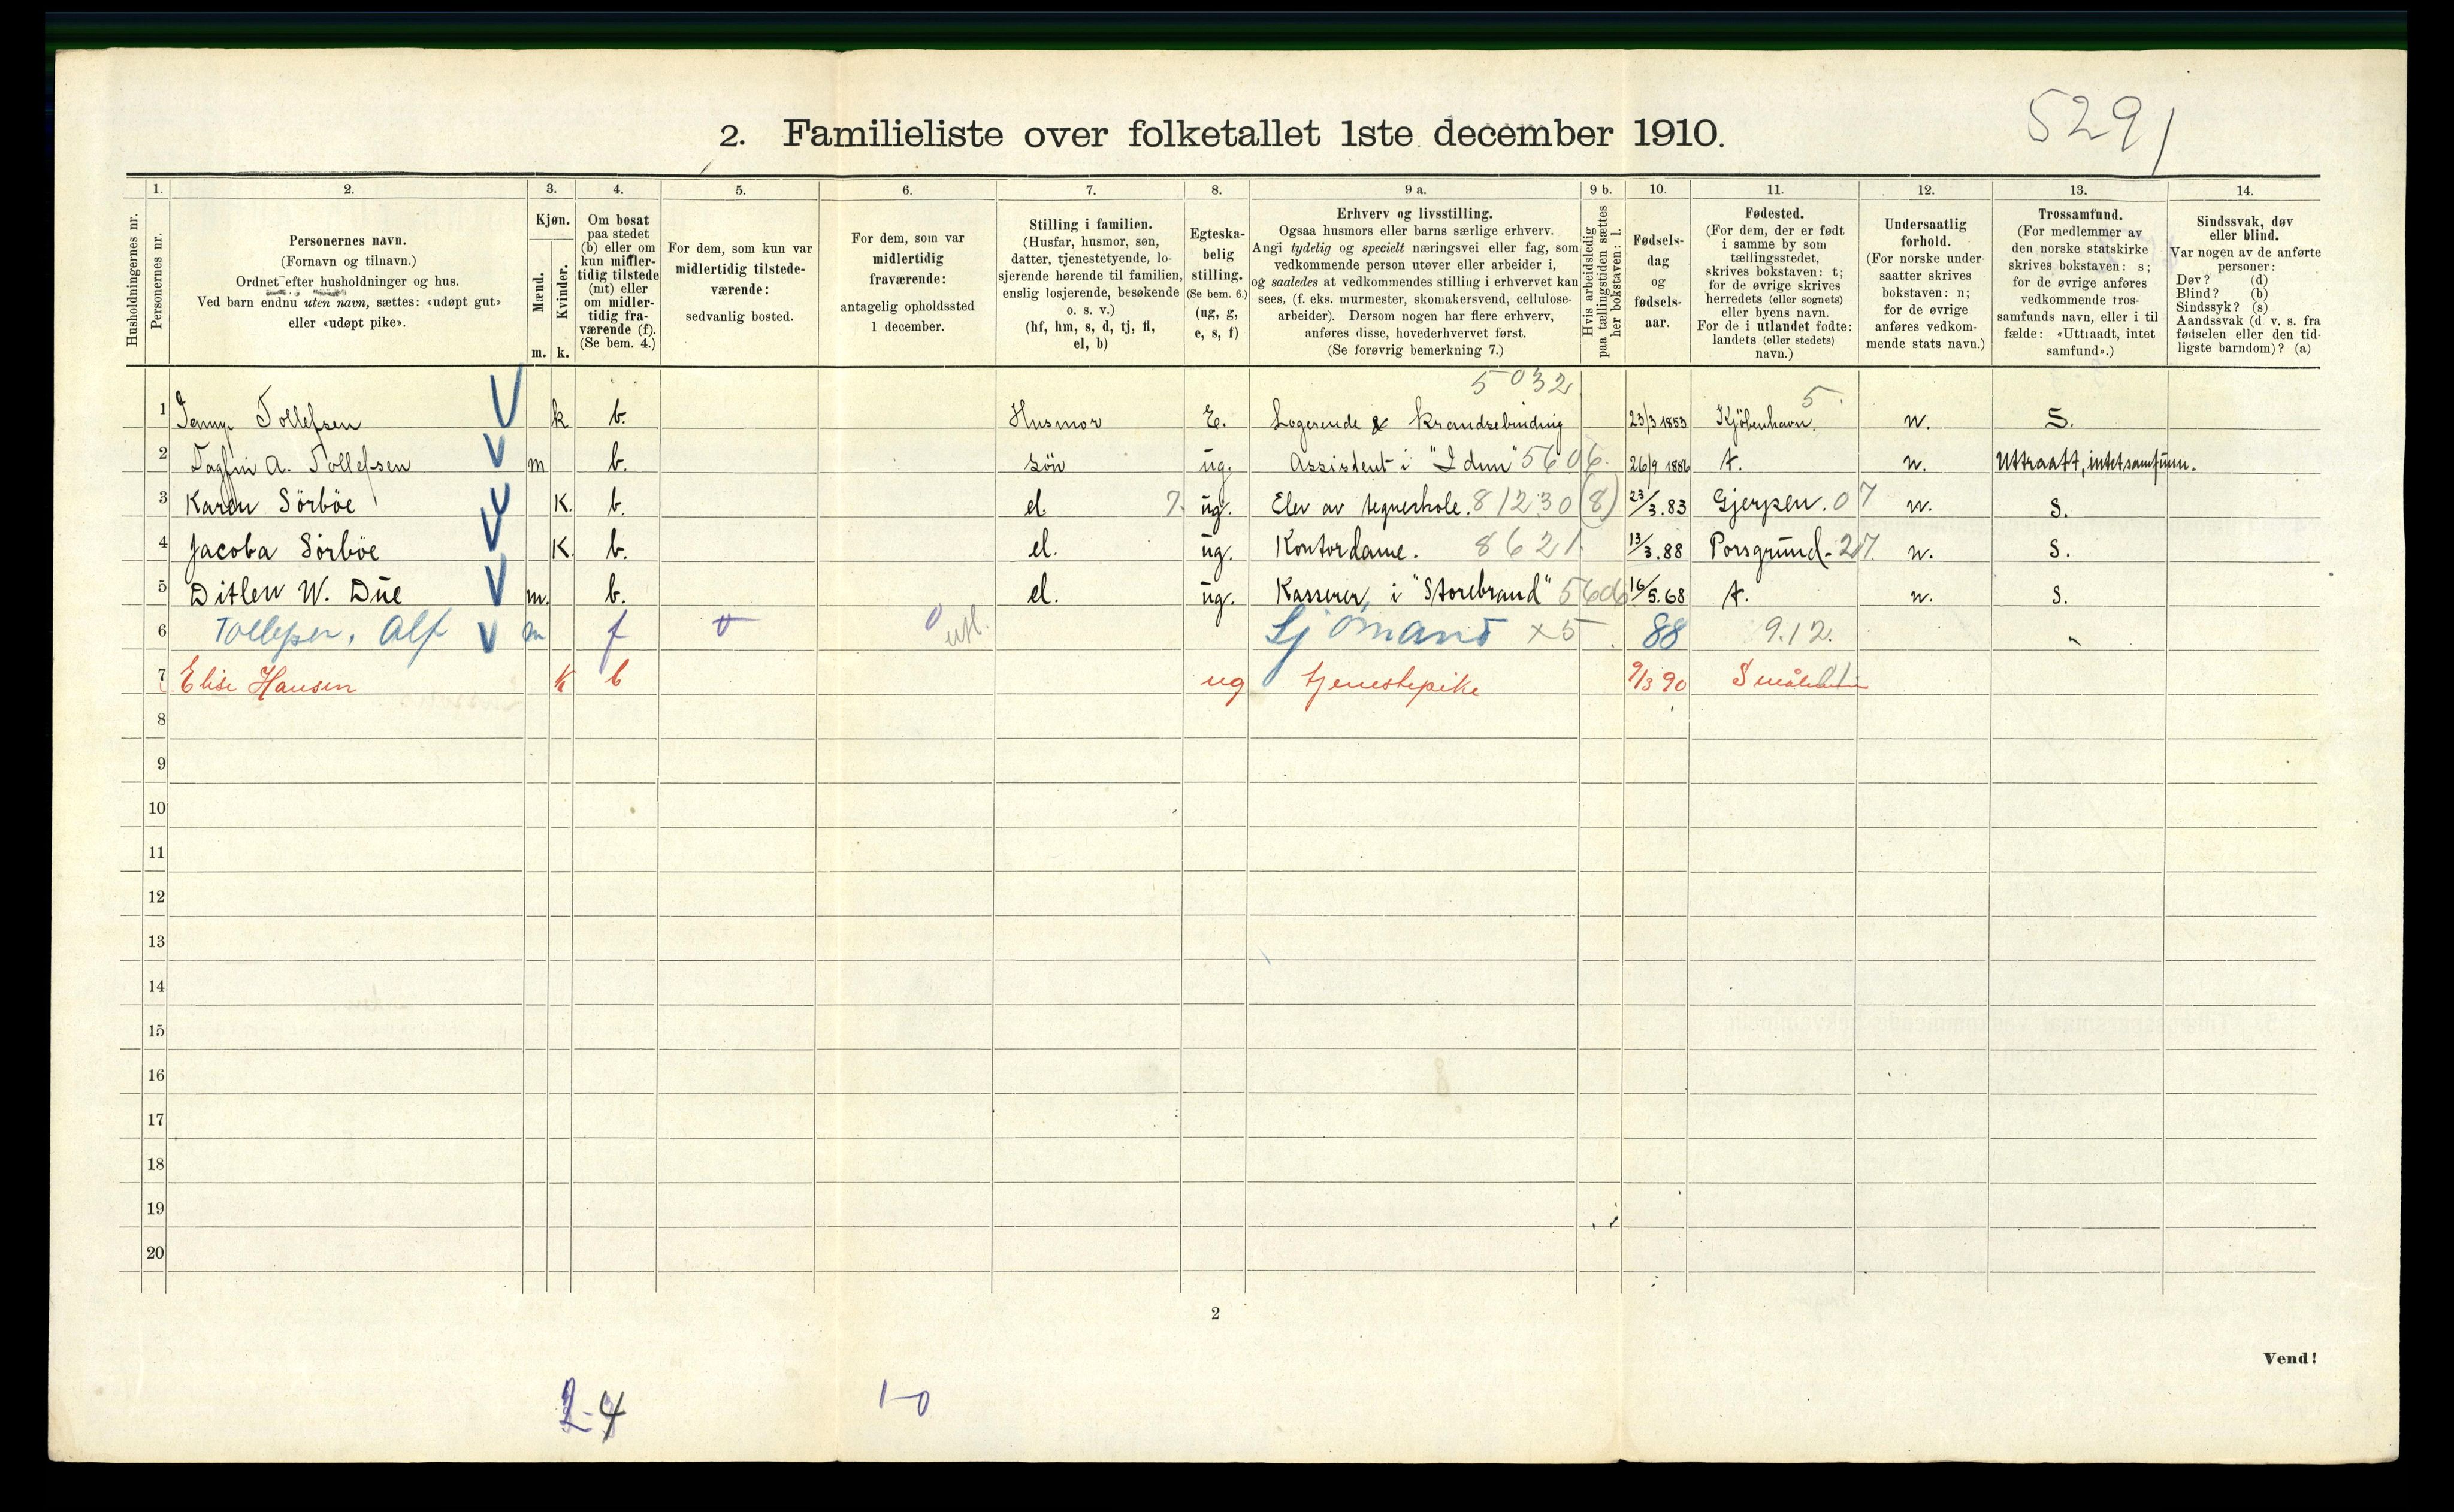 5291
2. Familieliste over folketallet 1ste december 1910.
1. 2. 3. 4. 5. 6. 7. 8. 9 a. 9 b. 10. 11. 12. 13. 14.
Husholdningernes nr.
Personernes nr.
Personernes navn.
(Fornavn og tilnavn.)
Ordnet efter husholdninger og hus.
Ved barn endnu uten navn, sættes: «udøpt gut»
eller «udøpt pike».
Kjøn.
Mænd.
Kvinder.
m. k.
Om bosat
paa stedet
(b) eller om
kun midler-
tidig tilstede
(mt) eller
om midler-
tidig fra-
værende (f).
(Se bem. 4.)
For dem, som kun var
midlertidig tilstede-
værende:
sedvanlig bosted.
For dem, som var
midlertidig
fraværende:
antagelig opholdssted
1 december.
Stilling i familien.
(Husfar, husmor, søn,
datter, tjenestetyende, lo-
sjerende hørende til familien,
enslig losjerende, besøkende
o. s. v.)
(hf, hm, s, d, tj, fl,
el, b)
Egteska-
belig
stilling.
(Se bem. 6.)
(ug, g,
e, s, f)
Erhverv og livsstilling.
Ogsaa husmors eller barns særlige erhverv.
Angi tydelig og specielt næringsvei eller fag, som
vedkommende person utøver eller arbeider i,
og saaledes at vedkommendes stilling i erhvervet kan
sees, (f. eks. murmester, skomakersvend, cellulose-
arbeider). Dersom nogen har flere erhverv,
anføres disse, hovederhvervet først.
(Se forøvrig bemerkning 7.)
Hvis arbeidsledig
paa tællingstiden sættes
her bokstaven: l.
Fødsels-
dag
og
fødsels-
aar.
Fødested.
(For dem, der er født
i samme by som
tællingsstedet,
skrives bokstaven: t;
for de øvrige skrives
herredets (eller sognets)
eller byens navn.
For de i utlandet fødte:
landets (eller stedets)
navn.)
Undersaatlig
forhold.
(For norske under-
saatter skrives
bokstaven: n;
for de øvrige
anføres vedkom-
mende stats navn.)
Trossamfund.
(For medlemmer av
den norske statskirke
skrives bokstaven: s;
for de øvrige anføres
vedkommende tros-
samfunds navn, eller i til
fælde: «Uttraadt, intet
samfund».)
Sindssvak, døv
eller blind.
Var nogen av de anførte
personer:
Døv? (d)
Blind? (b)
Sindssyk? (s)
Aandssvak (d. v. s. fra
fødselen eller den tid-
ligste barndom)? (a)
5032 5
1 Jenny Tollefsen k b. Husmor E. Logerende & krandsebinding 23/3 1853 Kjöbenhavn. n. S.
2 Dagfin A. Tollefsen m b. sön ug. Assistent i "Idun" 5606. 26/9 1886 t. n. Uttraatt, intet samfunn.
3 Karen Sörböe K. b. el. 7. ug. Elev av tegneskole. 81230 (8) 23/3.83 Gjerpen. 07 n. S.
4 Jacoba Sörböe K. b. el. ug. Kontordame. 8621 13/3.88 Porsgrund. 27 n. S.
5 Ditlev W. Düe m. b. el. ug. Kasserer i "Storebrand" 5606 16/5.68 t. n. S.
6 Tollefsen, Alf m f 0 utl. Sjömand x5 88 9.12.
7 Elise Hansen k b ug tjenestepike 9/3 90
8
9
10
11
12
13
14
15
16
17
18
19
20
2
Vend!
2-4 1-0